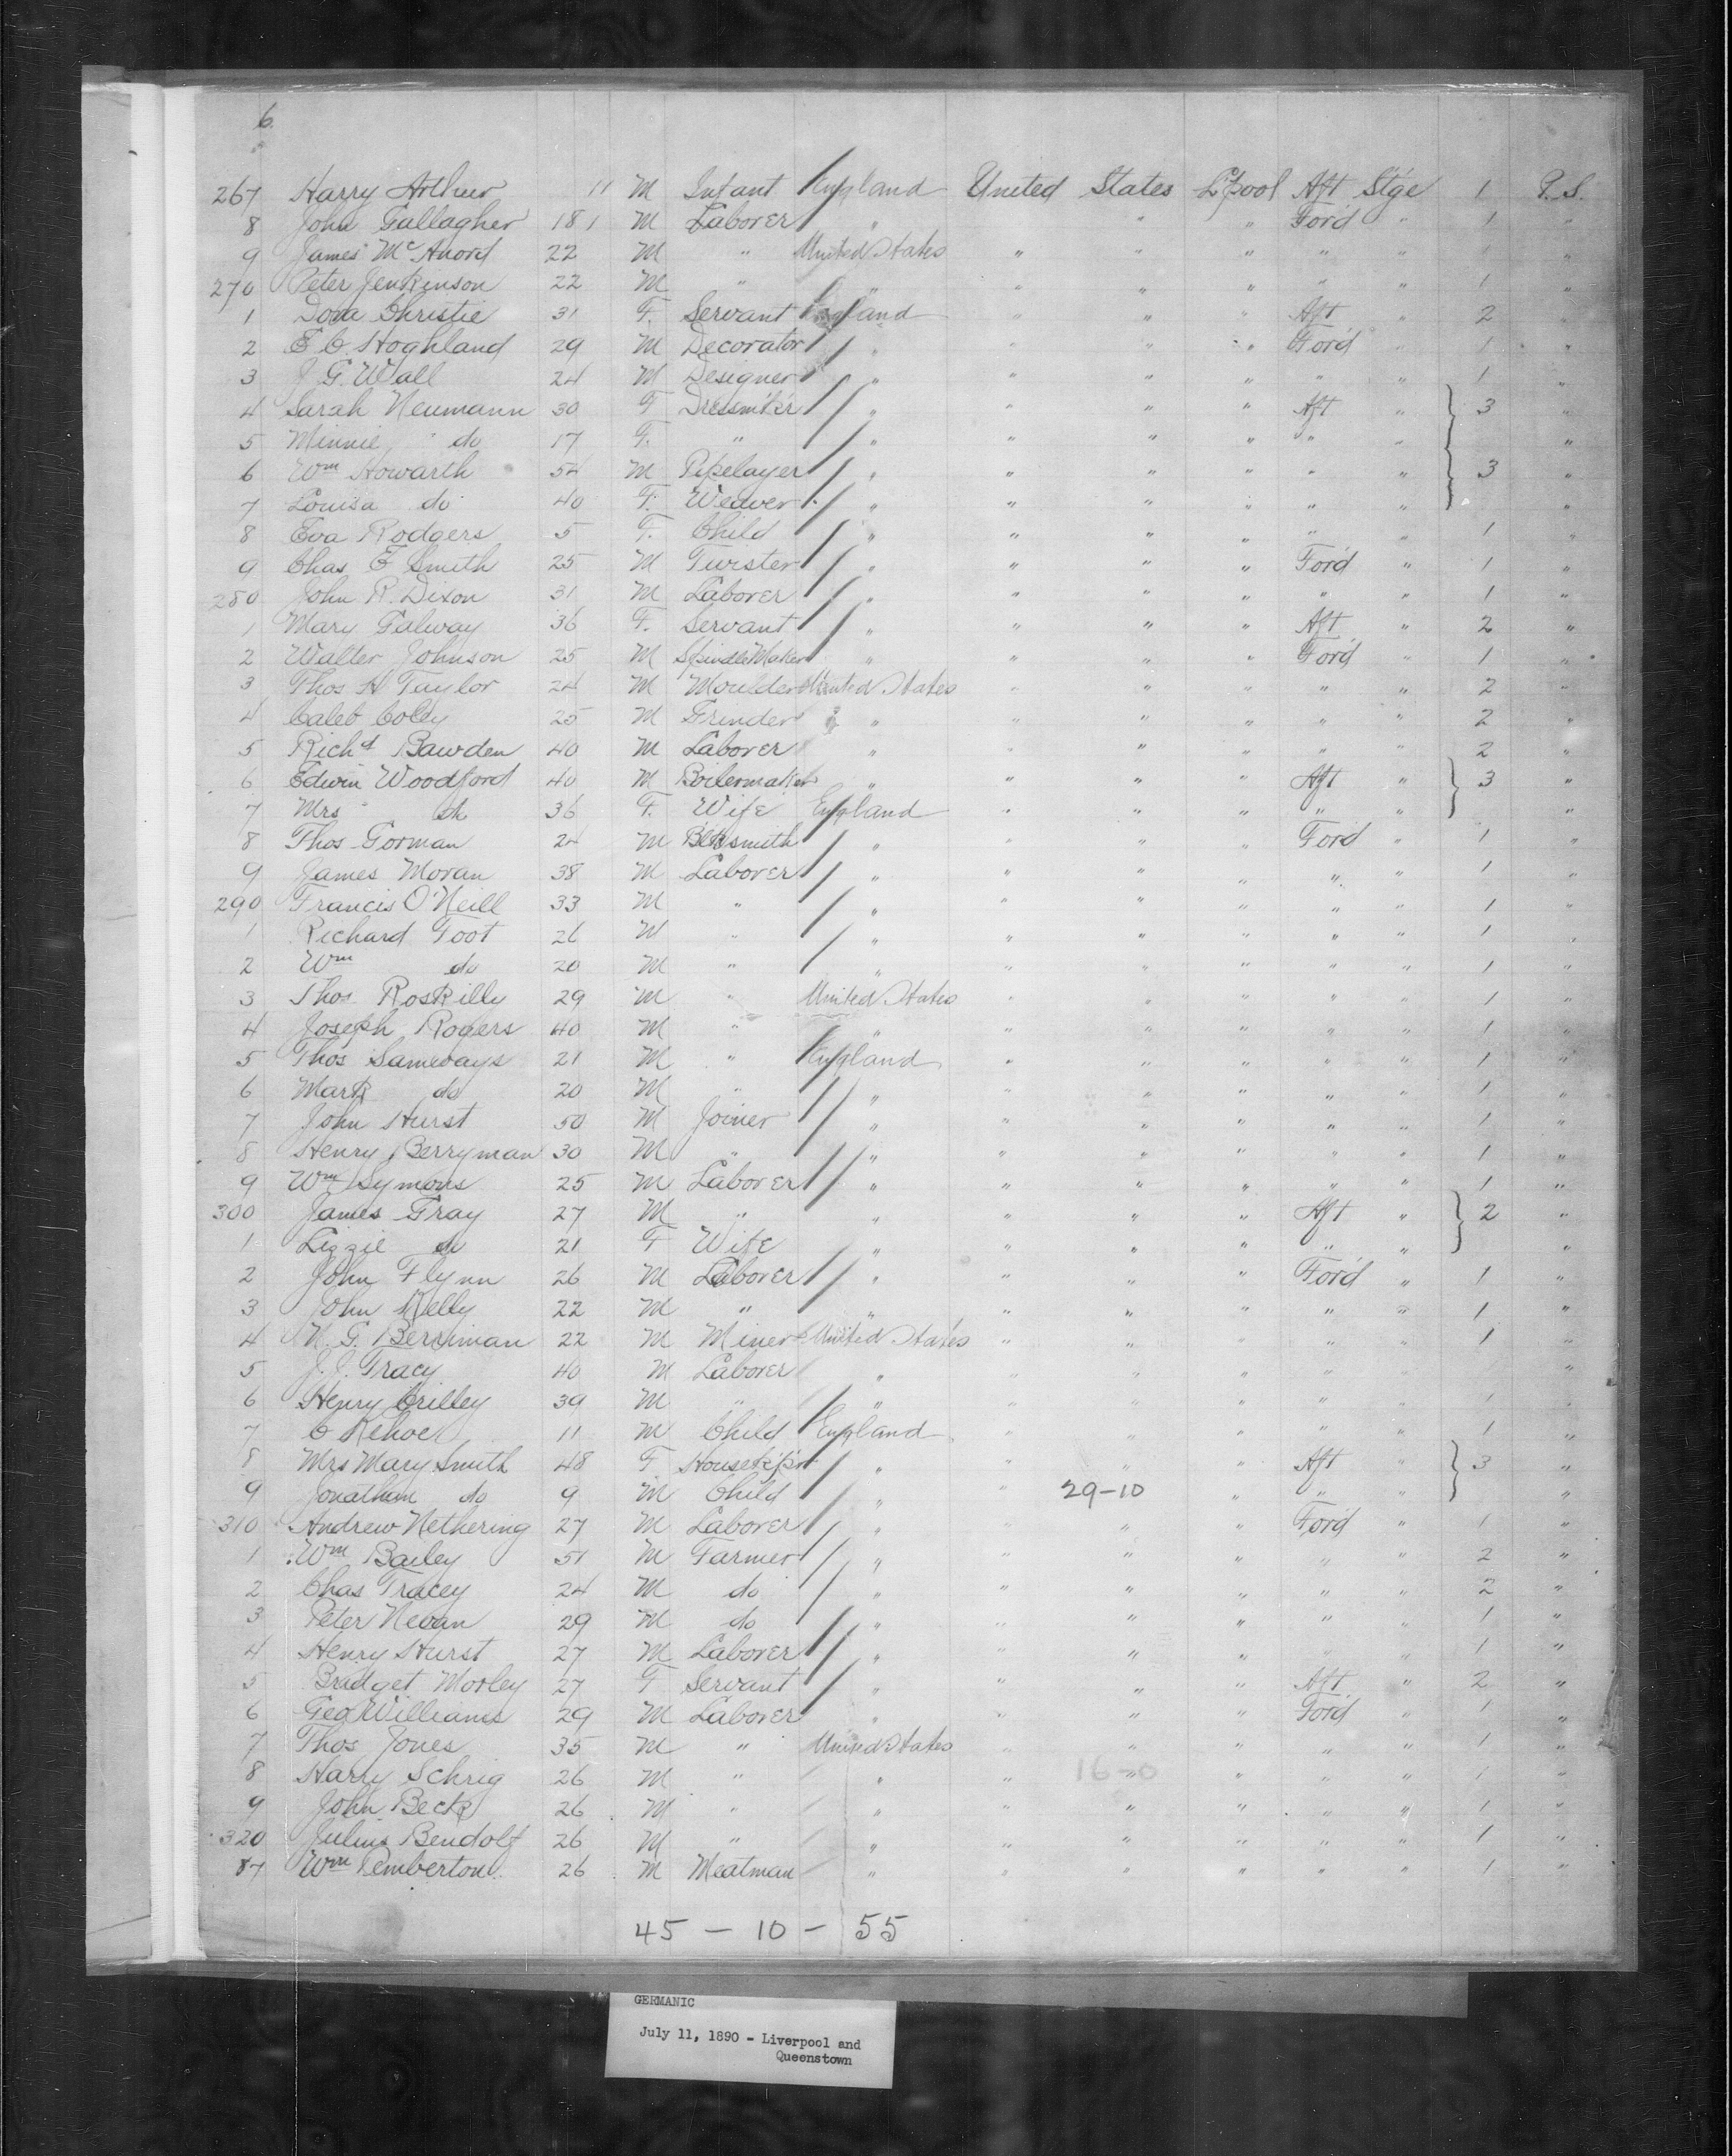 6.
267 Harry Arthur 11 M Infant England United States L'pool Aft Stge 1 P.S.
8 John Gallagher 18 1 M Laborer " " " Ford " 1 "
9 James Mc Anord 22 M " United States " " " " " 1 "
270 Peter Jenkinson 22 M " " " " " " " 1 "
1 Dora Christie 31 F. Servant England " " " Aft " 2 "
2 E C Hoghland 29 M Decorator " " " " Ford " 1 "
3 J. G. Wall 24 M Designer " " " " " " 1 "
4 Sarah Neumann 30 F Dressm'k'r " " " " Aft " 3 "
5 Minnie do 17 F. " " " " " " " "
6 Wm Howarth 54 M Pipelayer " " " " " " 3 "
7 Louisa do 40 F. Weaver " " " " " " "
8 Eva Rodgers 5 F. Child " " " " " " 1 "
9 Chas E Smith 25 M Turster " " " " Ford " 1 "
280 John R. Dixon 31 M Laborer " " " " " " 1 "
1 Mary Galway 36 F. Servant " " " " Aft " 2 "
2 Walter Johnson 25 M Spindle Maker " " " " Ford " 1 "
3 Thos H Taylor 24 M Moulder United States " " " " " 2 "
4 Caleb Coley 25 M Grinder " " " " " " 2 "
5 Richd Bawden 40 M Laborer " " " " " " 2 "
6 Edwin Woodford 40 M Boilermaker " " " " Aft " 3 "
7 Mrs do 36 F. Wife England " " " " " "
8 Thos Gorman 24 M Blksmith " " " " Ford " 1 "
9 James Moran 38 M Laborer " " " " " " 1 "
290 Francis O'Neill 33 M " " " " " " " 1 "
1 Richard Toot 26 M " " " " " " " 1 "
2 Wm do 20 M " " " " " " " 1 "
3 Thos Roskilly 29 M " United States " " " " " 1 "
4 Joseph Rogers 40 M " " " " " " " 1 "
5 Thos Sameways 21 M " England " " " " " 1 "
6 Mark do 20 M " " " " " " " 1 "
7 John Hurst 50 M Joiner " " " " " " 1 "
8 Henry Berryman 30 M " " " " " " " 1 "
9 Wm Symons 25 M Laborer " " " " " " 1 "
300 James Gray 27 M " " " " " Aft " 2 "
1 Lizzie do 21 F Wife " " " " " " "
2 John Flynn 26 M Laborer " " " " Ford " 1 "
3 John Kelly 22 M " " " " " " " 1 "
4 N. G. Berriman 22 M Miner United States " " " " " 1 "
5 J. J. Tracy 40 M Laborer " " " " " " "
6 Henry Crilley 39 M " " " " " " " 1 "
7 C Kehoe 11 M Child England " " " " " 1 "
8 Mrs Mary Smith 48 F Housek'p'r " " " " Aft " 3 "
9 Jonathan do 9 M Child " " 29-10 " " " "
310 Andrew Nethering 27 M Laborer " " " " Ford " 1 "
1 Wm Bailey 51 M Farmer " " " " " " 2 "
2 Chas Tracey 24 M do " " " " " " 2 "
3 Peter Nevan 29 M do " " " " " " 1 "
4 Henry Hurst 27 M Laborer " " " " " " 1 "
5 Bridget Morley 27 F Servant " " " " Aft " 2 "
6 Geo Williams 29 M Laborer " " " " Ford " 1 "
7 Thos Jones 35 M " United States " " " " " 1 "
8 Harry Schrig 26 M " " " 16-0 " " " " 1 "
9 John Beck 26 M " " " " " " " 1 "
320 Julius Bendolf 26 M " " " " " " " 1 "
87 Wm Pemberton 26 M Meatman " " " " " " 1 "
45 - 10 - 55
GERMANIC
July 11, 1890 - Liverpool and
Queenstown